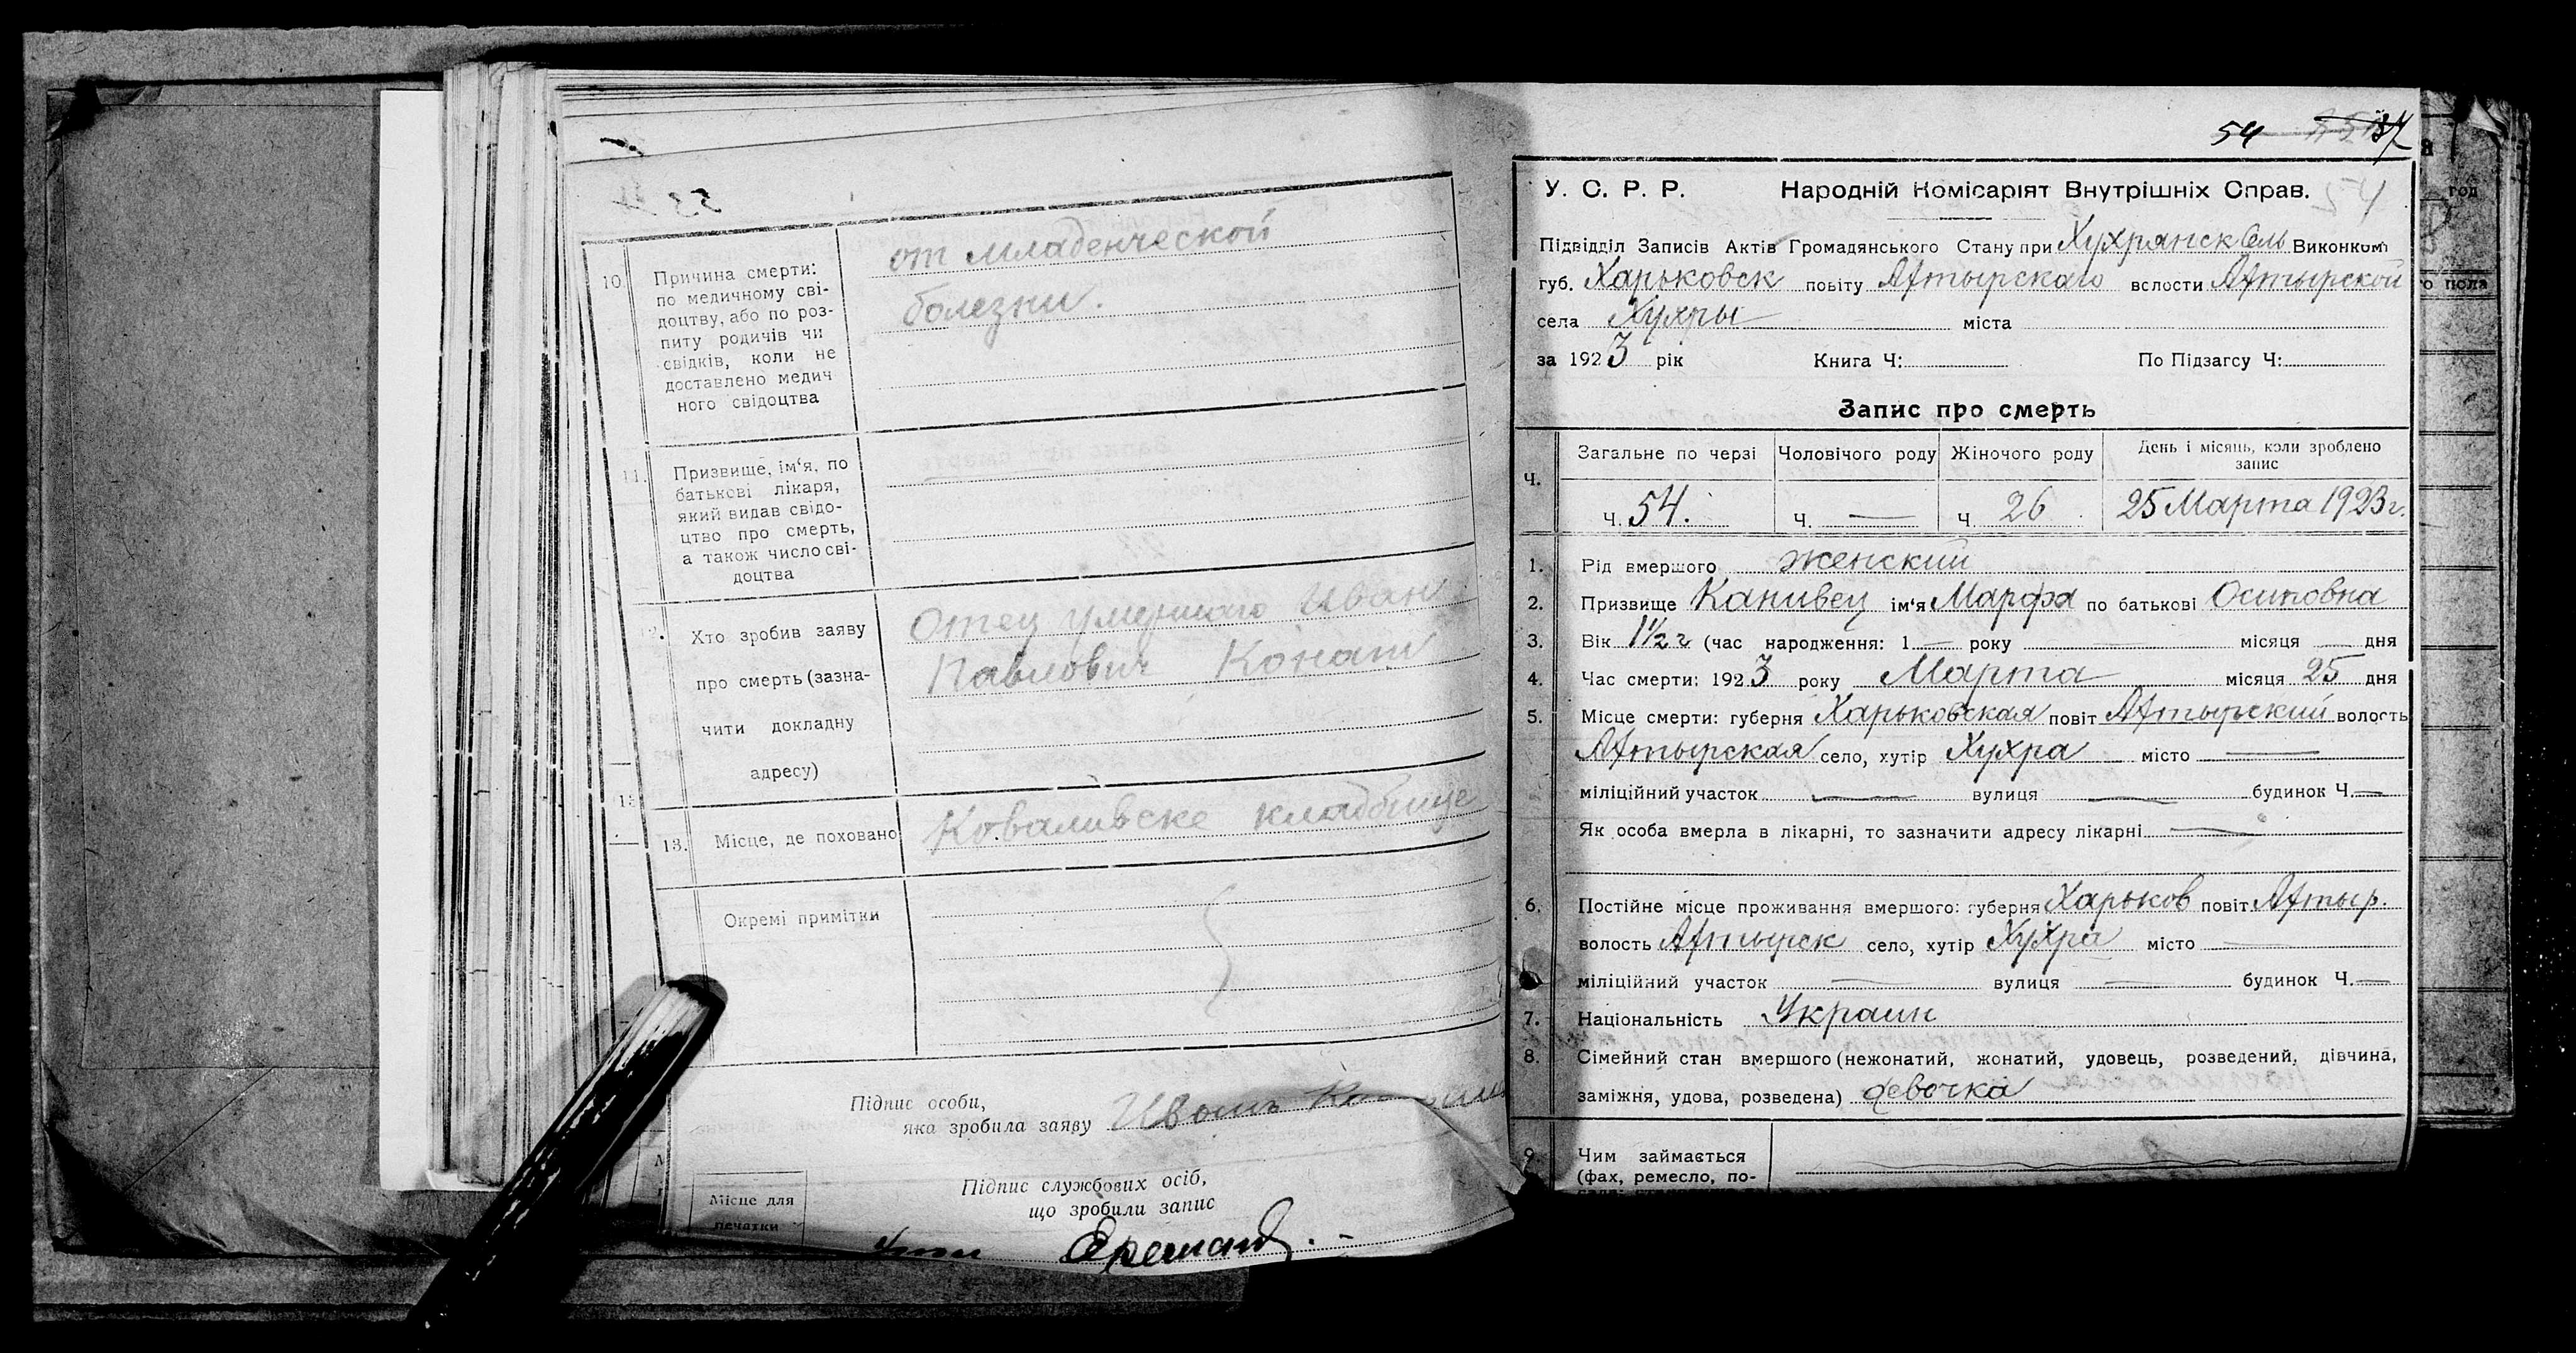 10
Причина смерти:
по медичному сві-
доцтву, або по роз-
питу родичів чи
свідків, коли не
доставлено медич
ного свідоцтва
от младенческой
болезни.
11.
Призвище, ім'я, по
батькові лікаря,
який видав свідо-
цтво про смерть,
а також число сві-
доцтва
12.
Хто зробив заяву
про смерть (зазна-
чити докладну
адресу)
Отец умершаго Иван
Павлович
13.
Місце, де поховано
Коваливске кладбище
Окремі примітки
Підпис особи,
яка зробила заяву
Місце для
печатки
Підпис службових осіб,
що зробили запис
54
У. С. Р. Р. Народній Комісаріят Внутрішніх Справ. 54
Підвідділ Записів Актів Громадянського Стану при Хухрянск Сель Виконком
губ. Харьковск повіту Ахтырскаго волости Ахтырской
села Хухры міста
за 1923 рік Книга Ч: По Підзагсу Ч:
Запис про смерть
Ч. Загальне по черзі Чоловічого роду Жіночого роду День і місяць, коли зроблено
запис
Ч. 54. Ч. — Ч. 26 25 Марта 1923 г.
1. Рід вмершого женский
2. Призвище Канивец ім'я Марфа по батькові Осиповна
3. Вік 1½ г (час народження: 1 — року — місяця — дня
4. Час смерти: 1923 року Марта місяця 25 дня
5. Місце смерти: губерня Харьковская повіт Ахтырский волость
Ахтырская село, хутір Хухра місто —
міліційний участок — вулиця — будинок Ч. —
Як особа вмерла в лікарні, то зазначити адресу лікарні —
6. Постійне місце проживання вмершого: губерня Харьков повіт Ахтыр.
волость Ахтырск село, хутір Хухра місто —
міліційний участок — вулиця — будинок Ч. —
7. Національність Украин
8. Сімейний стан вмершого (нежонатий, жонатий, удовець, розведений, дівчина,
заміжня, удова, розведена) девочка
9. Чим займається
(фах, ремесло, по-